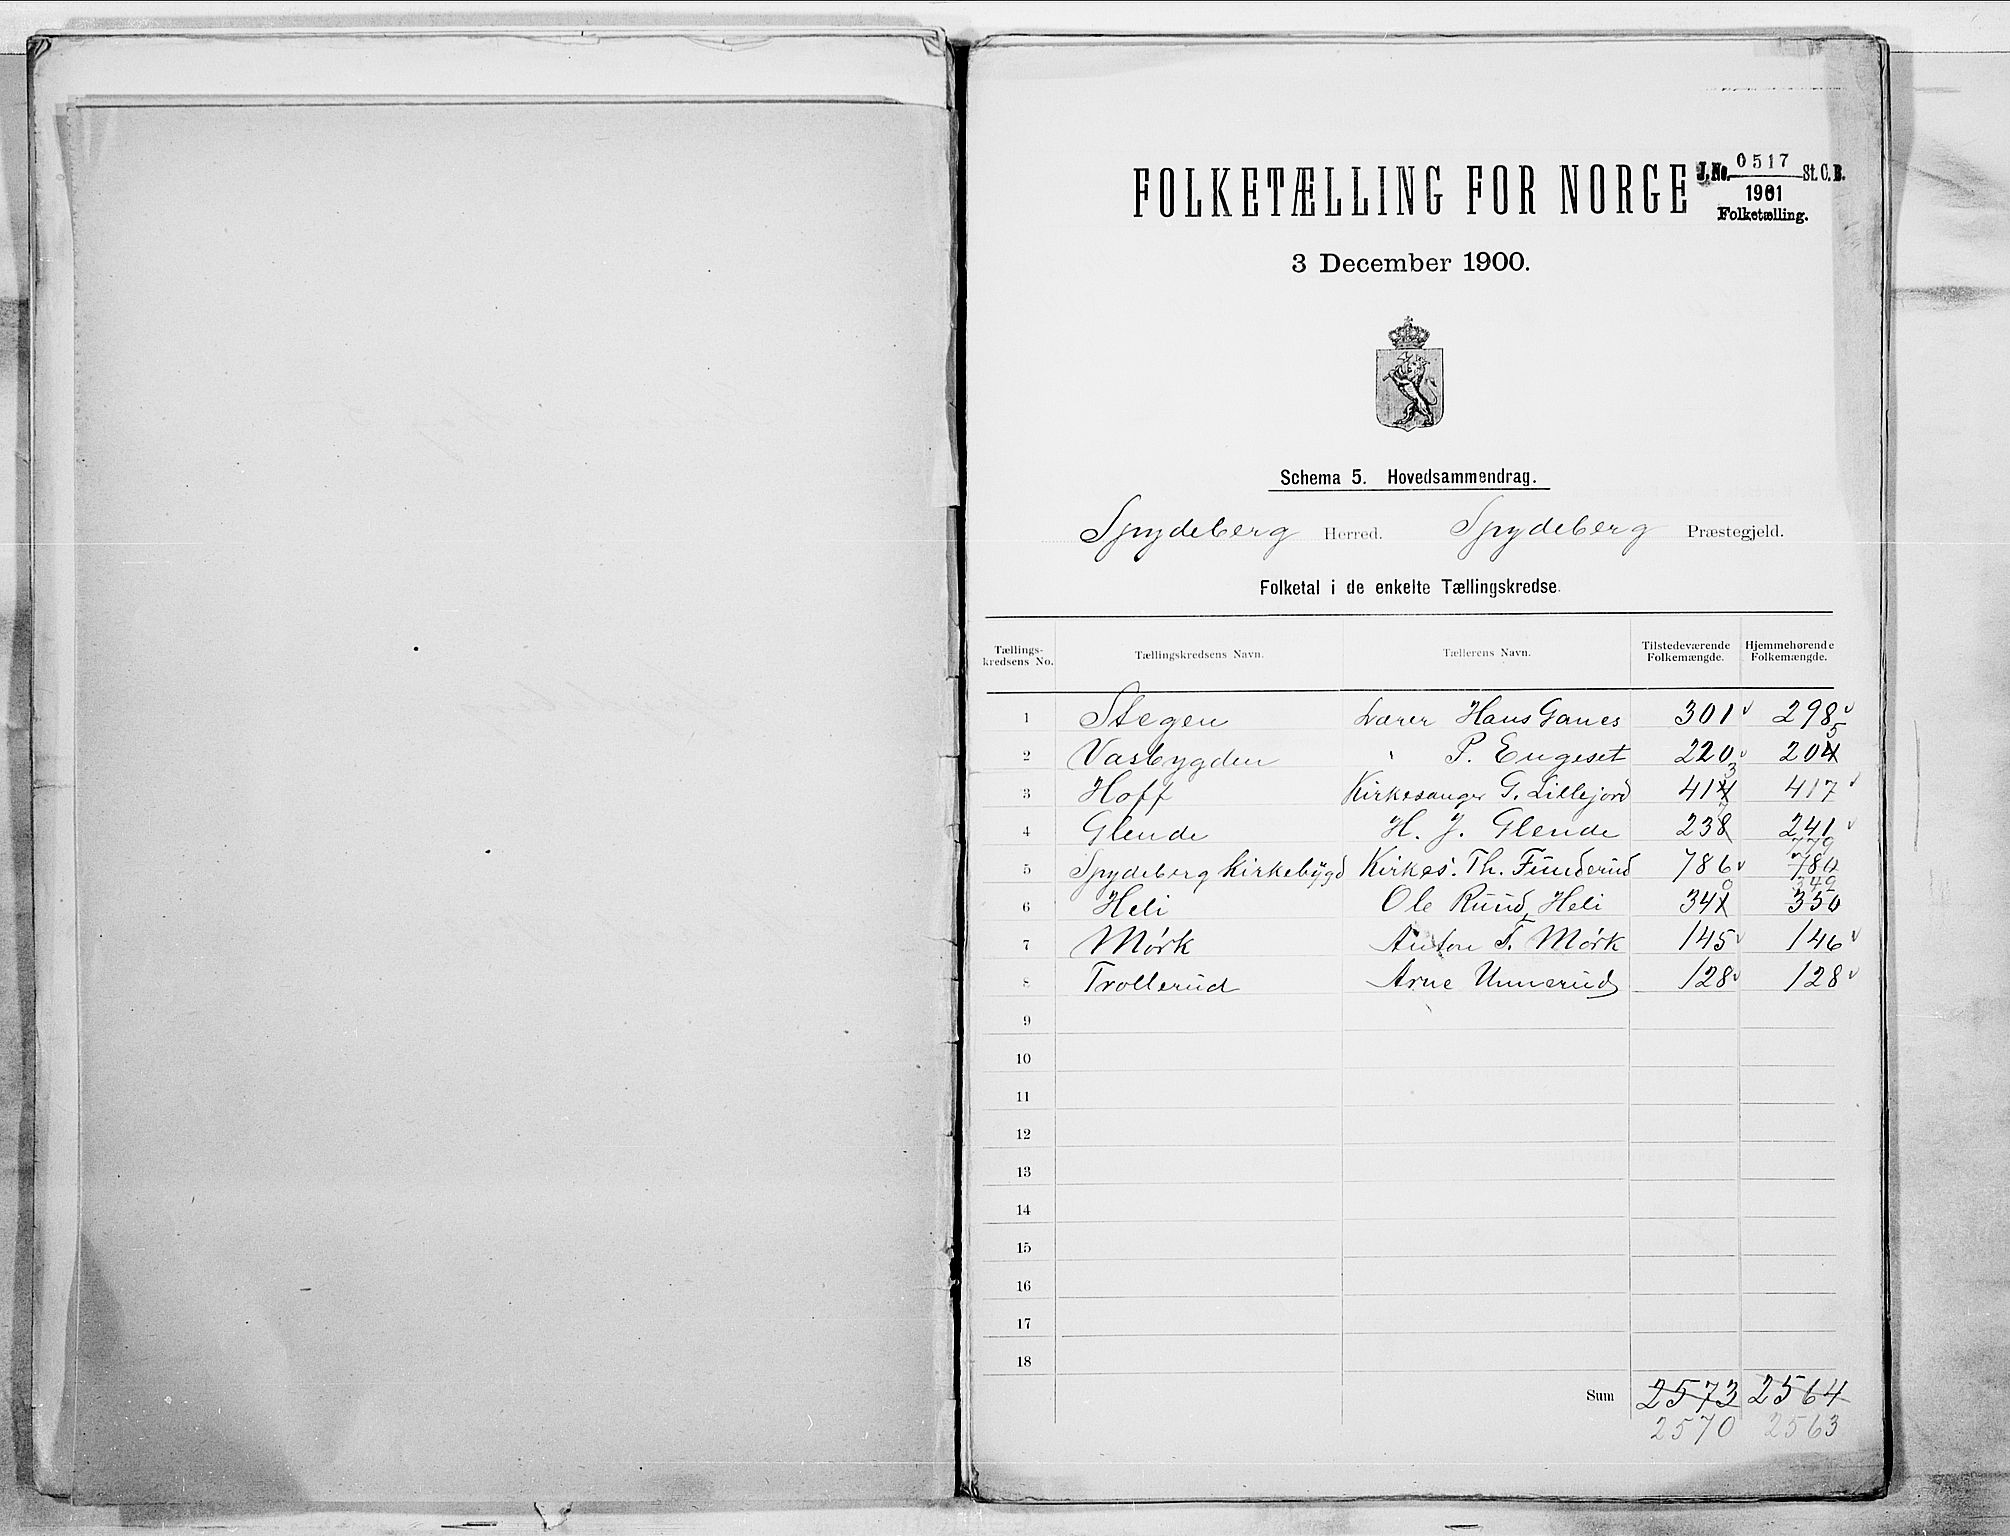 FOLKETÆLLING FOR NORGE
J. No. 0517 St. C. B.
1901
Folketælling.
3 December 1900.
Schema 5. Hovedsammendrag.
Spydeberg Herred. Spydeberg Præstegjeld.
Folketal i de enkelte Tællingskredse.
Tællings-kredsens No. Tællingskredsens Navn. Tællerens Navn. Tilstedeværende Folkemængde. Hjemmehørende Folkemængde.
1 Stegen Lærer Hans Ganes 301 298
2 Vasbygden " P. Engeset 220 204 5
3 Hoff Kirkesanger G. Lillejord 414 3 417
4 Glende H. J. Glende 238 7 241
5 Spydeberg Kirkebygd Kirkes. Th. Funderud 786 780 779
6 Heli Ole Ruud, Heli 341 0 350 349
7 Mørk Anton T. Mørk 145 146
8 Trollerud Arne Unnerud 128 128
9
10
11
12
13
14
15
16
17
18
Sum 2573 2564
2570 2563